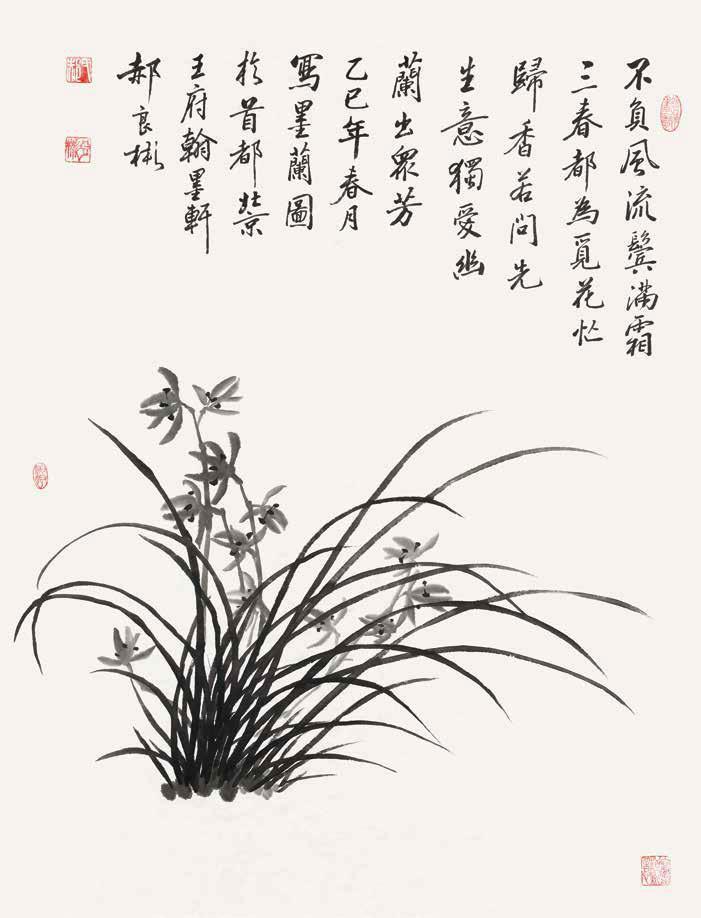 不負風流鬓滿霜
三春都為覓花忙
歸香若問先
生意獨愛幽
蘭出眾芳
乙巳年春月
寫墨蘭圖
於首都北京
王府翰墨軒
郝良彬